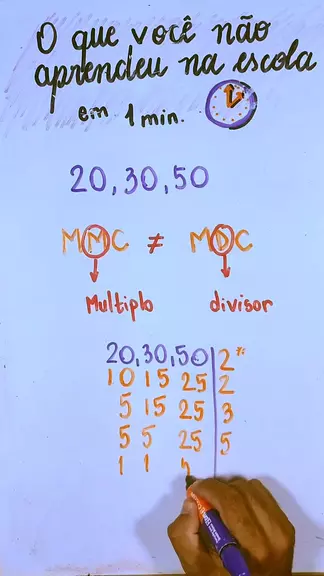 O que você não
aprendeu na escola
em 1 min.
20, 30, 50
MMC ≠ MDC
Multiplo divisor
20, 30, 50 2*
10 15 25 2
5 15 25 3
5 5 25 5
1 1